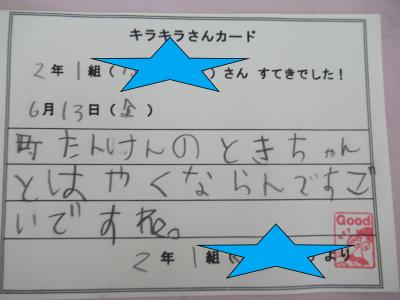 キラキラさんカード
2年 1組( )さん すてきでした!
6月13日(金)
町たんけんのときちゃん
とはやくならんですご
いですね。
Good
2年 1組( )より